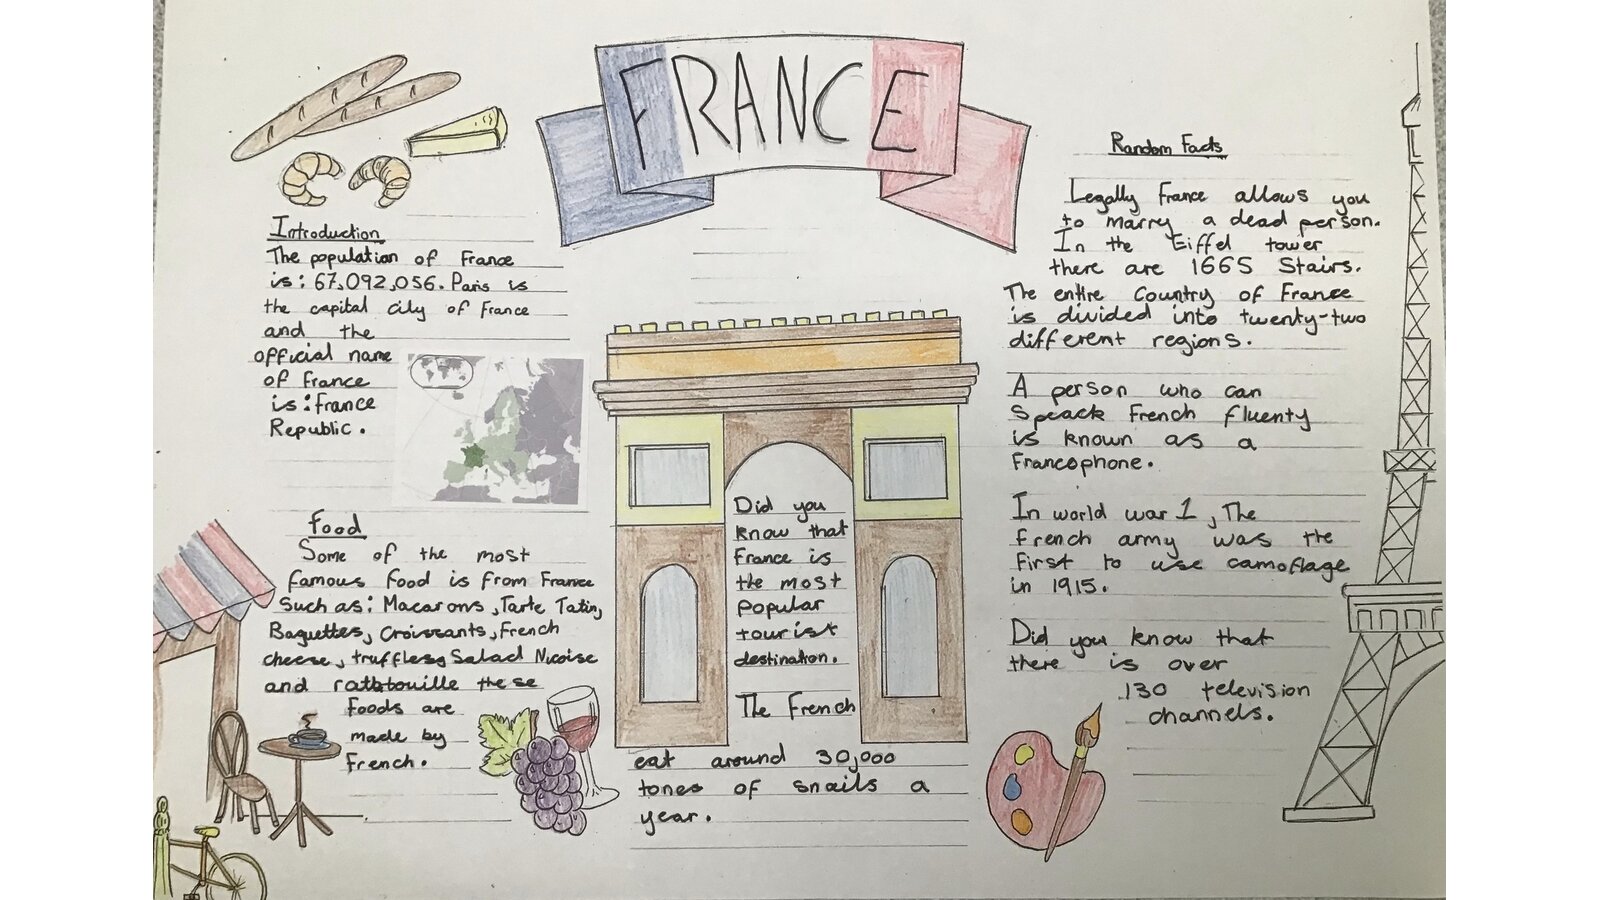 FRANCE
Introduction
The population of France
is: 67,092,056. Paris is
the capital city of France
and the
official name
of france
is: france
Republic.
Food
Some of the most
famous food is from France
Such as: Macarons, Tarte Tatin,
Baguettes, Croissants, French
cheese, truffles, Salad Nicoise
and ratbtouille these
foods are
made by
French.
Did you
know that
France is
the most
popular
tourist
destination.
The French
eat around 30,000
tones of snails a
year.
Random Facts
Legally France allows you
to marry a dead person.
In the Eiffel tower
there are 1665 Stairs.
The entire Country of France
is divided into twenty-two
different regions.
A person who can
Speack French fluenty
is known as a
Francophone.
In world war 1, The
french army was the
first to use camoflage
in 1915.
Did you know that
there is over
130 television
channels.